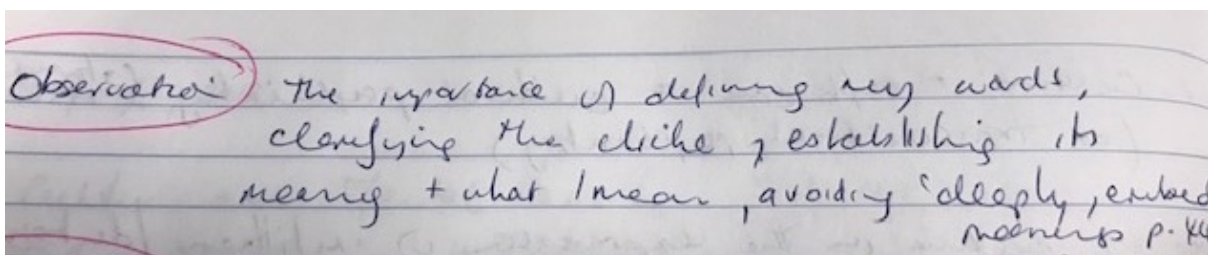 Observation The importance of defining key words,
clarifying the cliche, establishing its
meaning + what I mean, avoiding 'deeply, embed
meanings p.